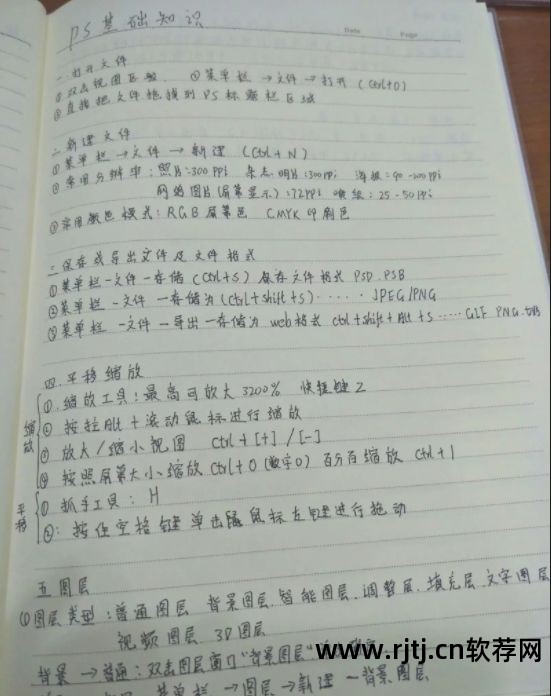 PS基础知识
Date Page
一.打开文件
①双击视图区域. ②菜单栏→文件→打开 (Ctrl+O)
③直接把文件拖拽到PS标题栏区域
二.新建文件
①菜单栏→文件→新建 (Ctrl+N)
②常用分辨率:照片:300PPi 杂志.明片:300PPi 海报:90-200PPi
网络图片(屏幕显示):72PPi 喷绘:25-50PPi
③常用颜色模式:RGB屏幕色 CMYK印刷色
三.保存或导出文件及文件格式
①菜单栏-文件-存储(Ctrl+S)保存文件格式PSD.PSB
②菜单栏-文件-存储为(Ctrl+shift+S)······JPEG/PNG
③菜单栏-文件-导出-存储为web格式 ctrl+shift+Alt+S·····GIF PNG.
四.平移缩放
缩放
①.缩放工具:最高可放大3200% 快捷键Z
②按拉Alt+滚动鼠标进行缩放
③放大/缩小视图 Ctrl+[+]/[-]
④按照屏幕大小缩放Ctrl+0(数字0)百分百缩放 Ctrl+1
平移
①抓手工具:H
②:按住空格键单击鼠标左键进行拖动
五图层
(1)图层类型:普通图层 背景图层.智能图层.调整层.填充层.文字图层
视频图层 3D图层
背景→普通:双击图层窗口"背景图层"
菜单栏→图层→新建-背景图层
www.rjtj.cn软荐网